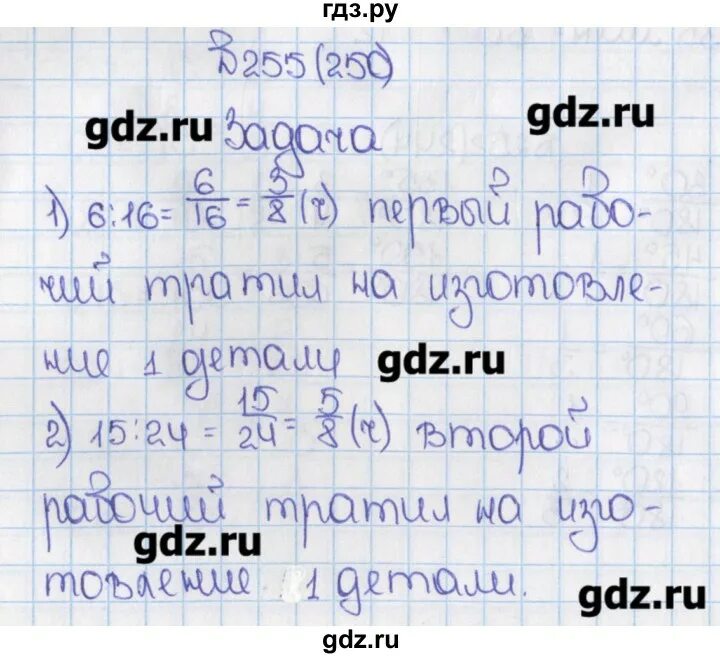 гдз.ру
В 255 (250)
gdz.ru
gdz.ru Задача
1) 6:16 = 6/16 = 3/8 (ч) первый рабо-
чий тратил на изготовле-
ние 1 детали gdz.ru
2) 15:24 = 15/24 = 5/8 (ч) второй
рабочий тратил на изго-
gdz.ru
товление 1 детали.
gdz.ru
gdz.ru